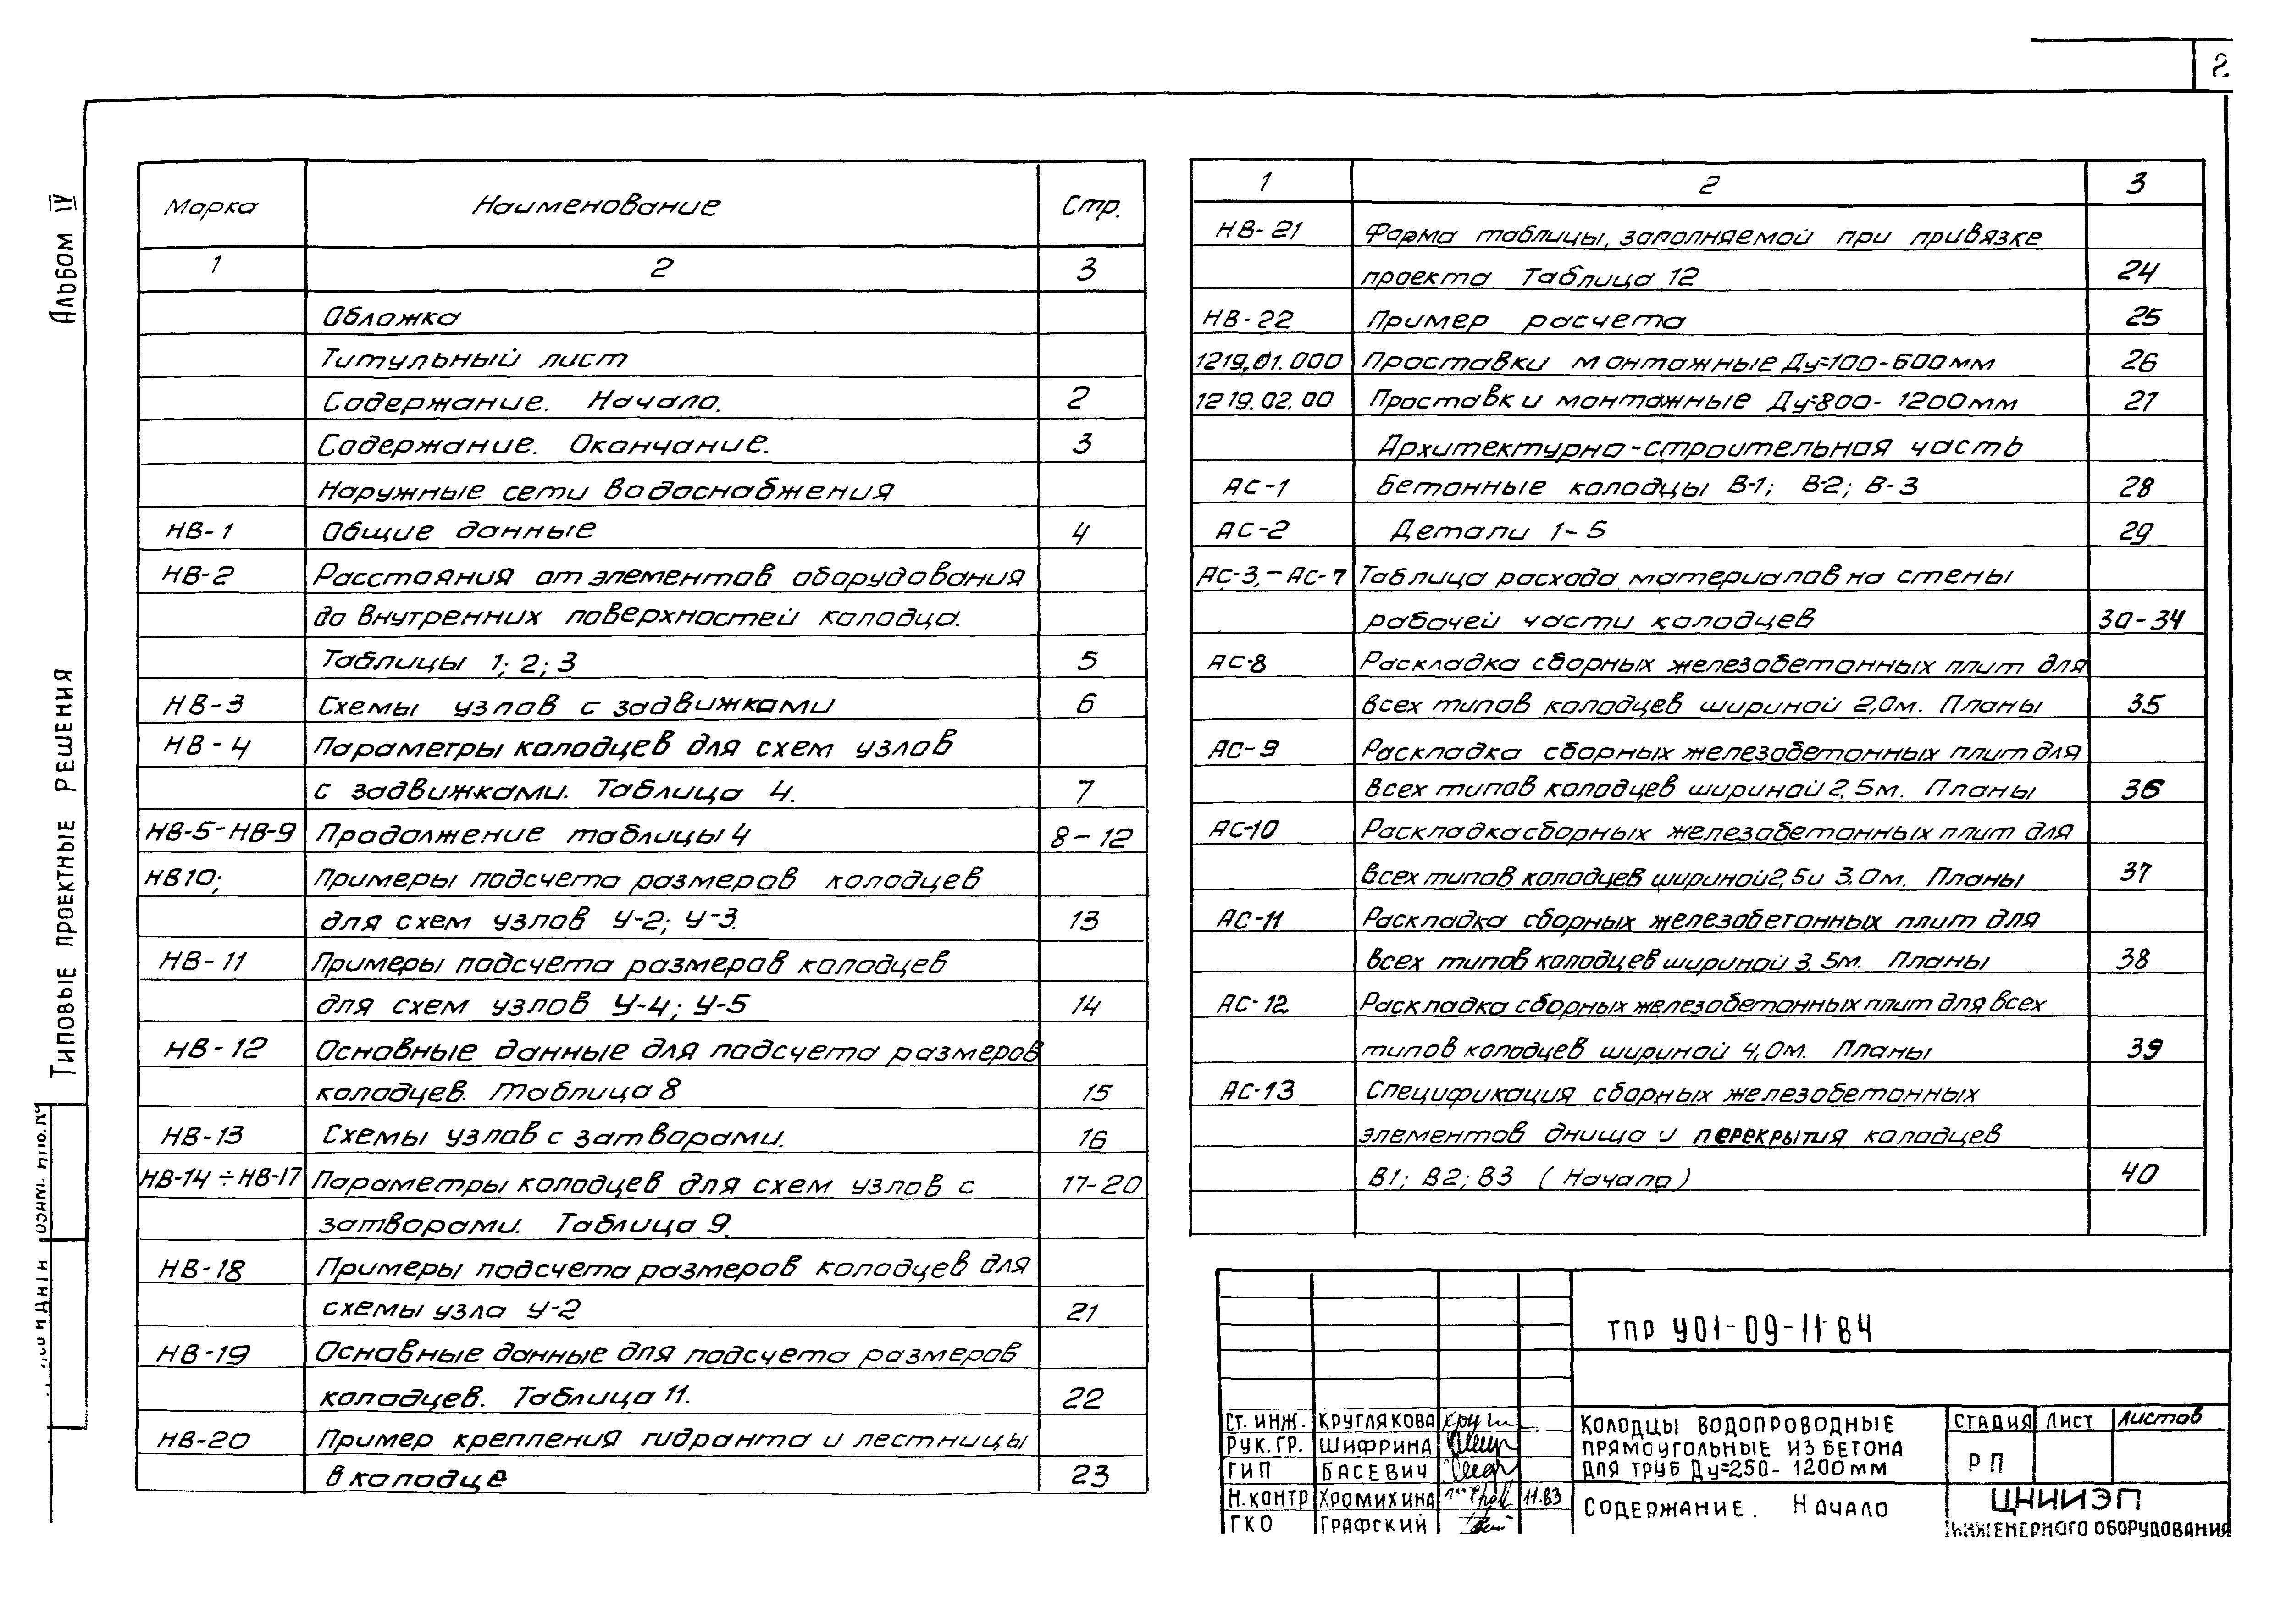 2
Альбом IV
Типовые проектные решения
Марка Наименование Стр.
1 2 3
Обложка
Титульный лист
Содержание. Начало. 2
Содержание. Окончание. 3
Наружные сети водоснабжения
НВ-1 Общие данные 4
НВ-2 Расстояния от элементов оборудования
до внутренних поверхностей колодца.
Таблицы 1; 2; 3 5
НВ-3 Схемы узлов с задвижками 6
НВ-4 Параметры колодцев для схем узлов
с задвижками. Таблица 4. 7
НВ-5-НВ-9 Продолжение таблицы 4 8-12
НВ10; Примеры подсчета размеров колодцев
для схем узлов У-2; У-3. 13
НВ-11 Примеры подсчета размеров колодцев
для схем узлов У-4; У-5 14
НВ-12 Основные данные для подсчета размеров
колодцев. Таблица 8 15
НВ-13 Схемы узлов с затворами. 16
НВ-14÷НВ-17 Параметры колодцев для схем узлов с 17-20
затворами. Таблица 9.
НВ-18 Примеры подсчета размеров колодцев для
схемы узла У-2 21
НВ-19 Основные данные для подсчета размеров
колодцев. Таблица 11. 22
НВ-20 Пример крепления гидранта и лестницы
в колодце 23
1 2 3
НВ-21 Форма таблицы, заполняемой при привязке
проекта Таблица 12 24
НВ-22 Пример расчета 25
1219.01.000 Проставки монтажные Ду=100-600мм 26
1219.02.00 Проставки монтажные Ду=800-1200мм 27
Архитектурно-строительная часть
АС-1 Бетонные колодцы В-1; В-2; В-3 28
АС-2 Детали 1-5 29
АС-3,-АС-7 Таблица расхода материалов на стены
рабочей части колодцев 30-34
АС-8 Раскладка сборных железобетонных плит для
всех типов колодцев шириной 2,0м. Планы 35
АС-9 Раскладка сборных железобетонных плит для
всех типов колодцев шириной 2,5м. Планы 36
АС-10 Раскладка сборных железобетонных плит для
всех типов колодцев шириной 2,5 и 3,0м. Планы 37
АС-11 Раскладка сборных железобетонных плит для
всех типов колодцев шириной 3,5м. Планы 38
АС-12 Раскладка сборных железобетонных плит для всех
типов колодцев шириной 4,0м. Планы 39
АС-13 Спецификация сборных железобетонных
элементов днища и перекрытия колодцев
В1; В2; В3 (Начало) 40
ТПР 901-09-11 84
Ст. инж. Круглякова
Рук. гр. Шифрина
ГИП Басевич
Н.контр Хромихина 11.83
ГКО Графский
Колодцы водопроводные
прямоугольные из бетона
для труб Ду=250-1200мм
Стадия Лист Листов
РП
Содержание. Начало
ЦНИИЭП
инженерного оборудования